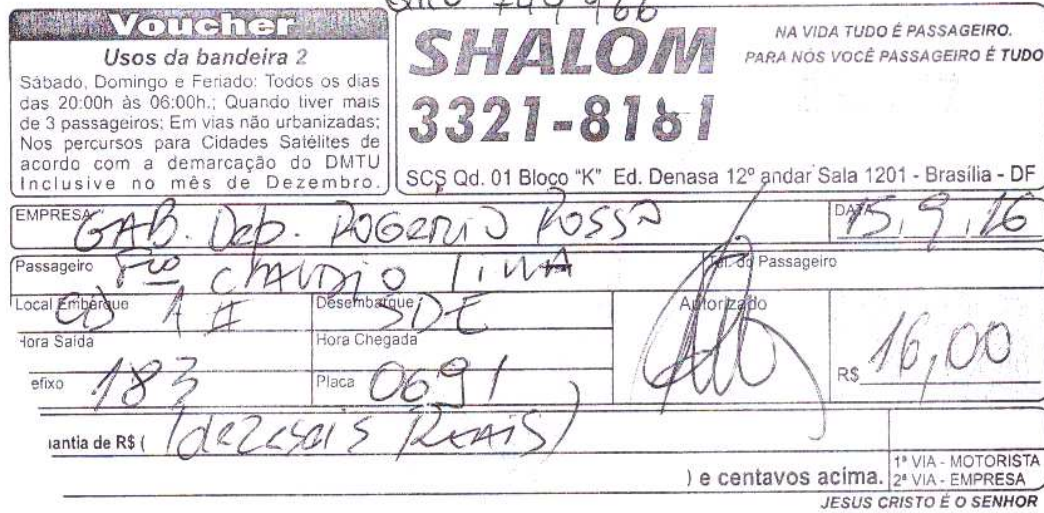 744966
Voucher
Usos da bandeira 2
Sábado, Domingo e Feriado: Todos os dias
das 20:00h às 06:00h.; Quando tiver mais
de 3 passageiros; Em vias não urbanizadas;
Nos percursos para Cidades Satélites de
acordo com a demarcação do DMTU
Inclusive no mês de Dezembro.
SHALOM
3321-8181
NA VIDA TUDO É PASSAGEIRO.
PARA NÓS VOCÊ PASSAGEIRO É TUDO
SCS Qd. 01 Bloco "K" Ed. Denasa 12º andar Sala 1201 - Brasília - DF
EMPRESA GAB. Dep. ROGERIO ROSSO DATA 15, 9, 16
Passageiro Fco CLAUDIO LIMA Tel. do Passageiro
Local Embarque CD A II Desembarque SDE Autorizado
Hora Saída Hora Chegada
efixo 183 Placa 0691 R$ 16,00
iantia de R$ ( (dezesseis REAIS)
) e centavos acima. 1ª VIA - MOTORISTA
2ª VIA - EMPRESA
JESUS CRISTO É O SENHOR